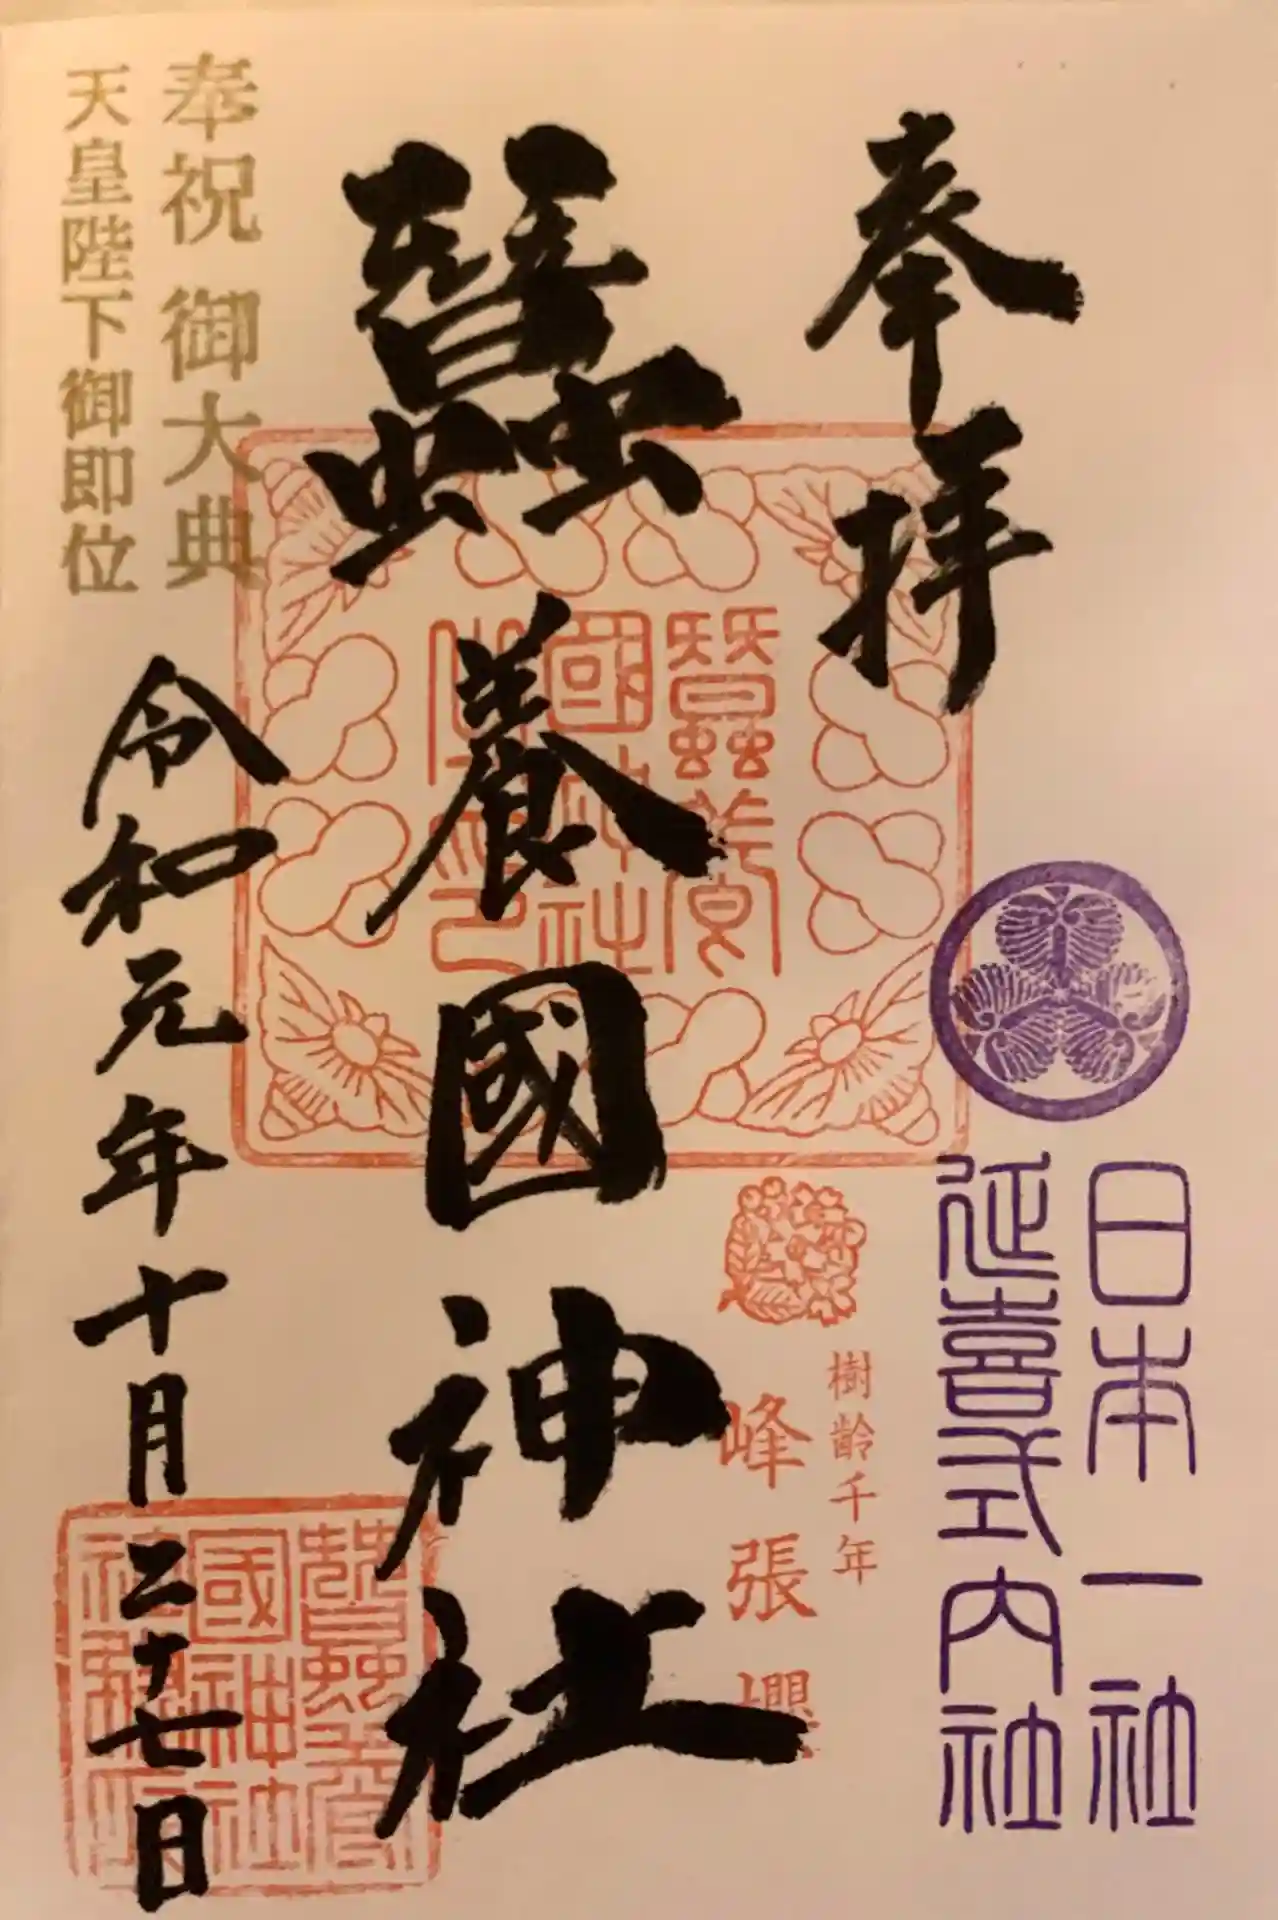 奉拝
日本一社
延喜式内社
樹齢千年
峰張櫻
蠶養國神社
蠶養
國神社
之印
奉祝 御大典
天皇陛下御即位
令和元年十月二十七日